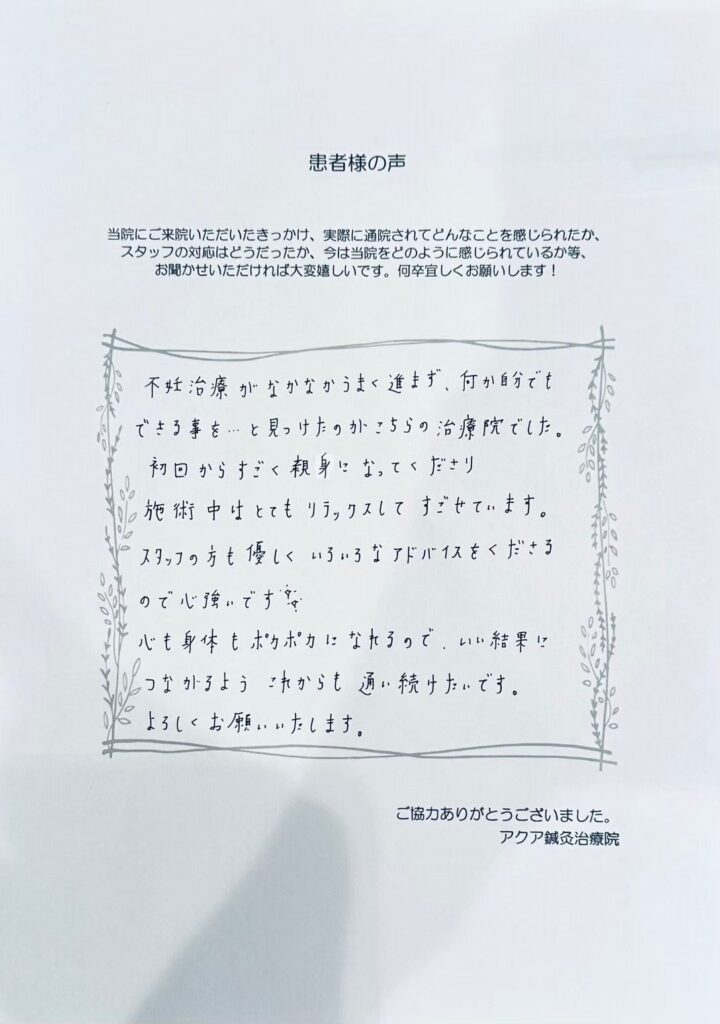 患者様の声
当院にご来院いただいたきっかけ、実際に通院されてどんなことを感じられたか、
スタッフの対応はどうだったか、今は当院をどのように感じられているか等、
お聞かせいただければ大変嬉しいです。何卒宜しくお願いします！
不妊治療がなかなかうまく進まず、何か自分でも
できる事を…と見つけたのがこちらの治療院でした。
初回からすごく親身になってくださり
施術中はとてもリラックスしてすごせています。
スタッフの方も優しくいろいろなアドバイスをくださる
ので心強いです
心も身体もポカポカになれるので、いい結果に
つながるようこれからも通い続けたいです。
よろしくお願いいたします。
ご協力ありがとうございました。
アクア鍼灸治療院